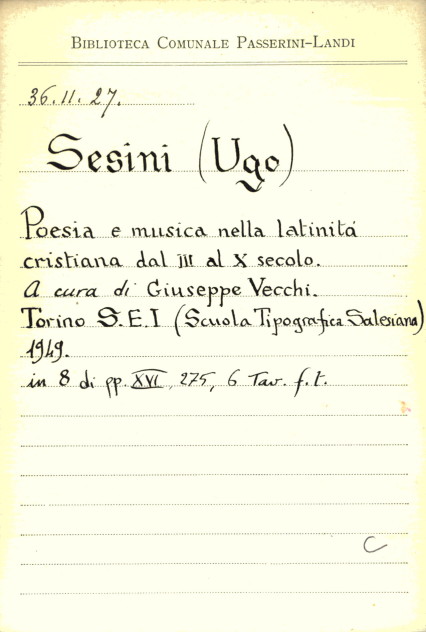 BIBLIOTECA COMUNALE PASSERINI-LANDI
36.11.27.
Sesini (Ugo)
Poesia e musica nella latinitá
cristiana dal III al X secolo.
A cura di Giuseppe Vecchi.
Torino S.E.I (Scuola Tipografica Salesiana)
1949.
in 8 di pp. XVI, 275, 6 Tav. f.t.
C